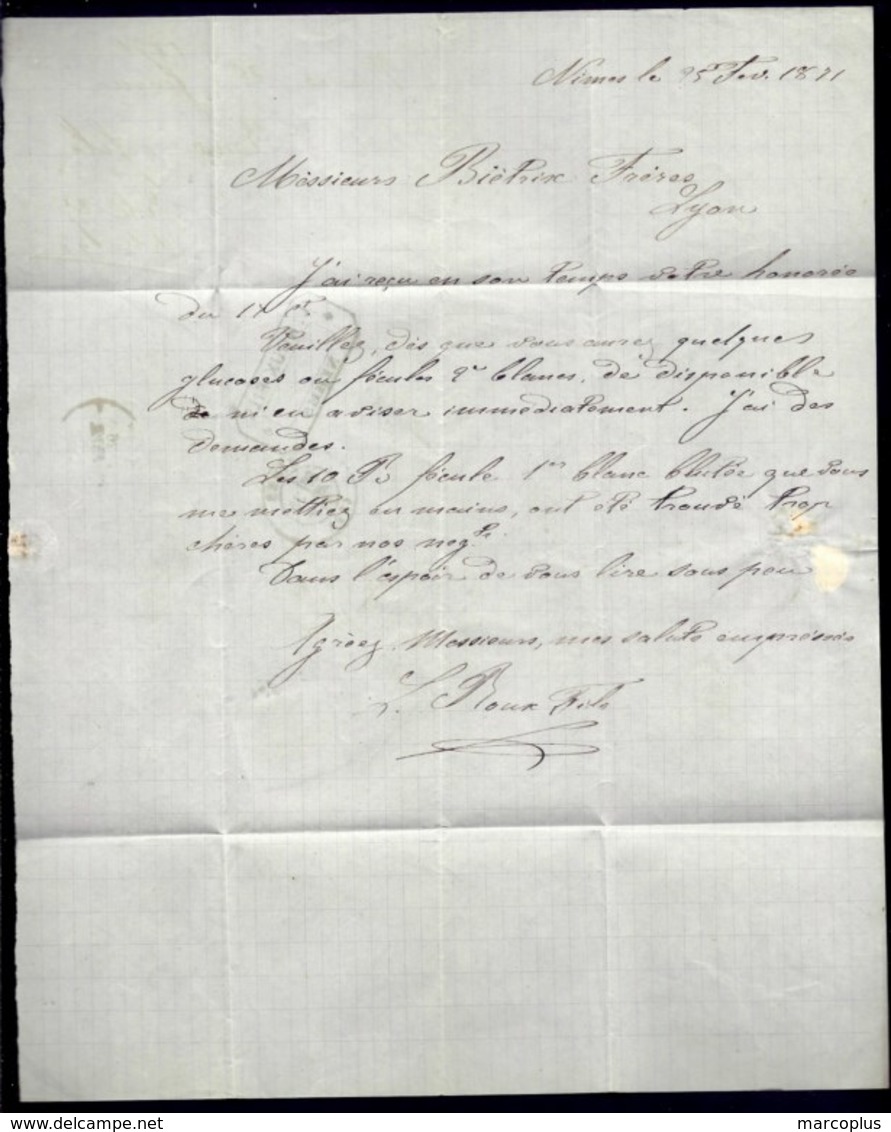 Nimes le 25 Fev. 1871
Messieurs Biétrix Frères
Lyon
J'ai reçu en son temps votre honorée
du 17 ct
Veuillez, dès que vous aurez quelques
glucoses ou fécules 2e blancs, de disponible
de m'en aviser immédiatement. J'ai des
demandes.
Les 10 Bs fécule 1er blanc blutée que vous
me mettiez en mains, ont été trouvé trop
chères par nos negts.
Dans l'espoir de vous lire sous peu
Agréez Messieurs, mes saluts empressés
L. Roux Fils
delcampe.net
marcoplus